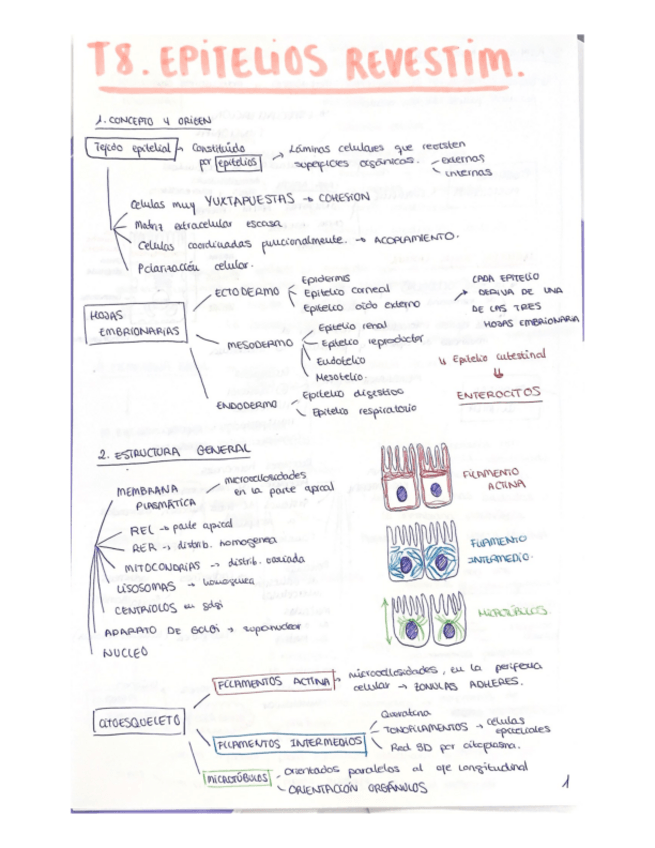 T8. EPITELIOS REVESTIM.
1. CONCEPTO Y ORIGEN
Tejido epitelial → Constituido por epitelios → Láminas celulares que revisten superficies orgánicas.
externas
internas
Células muy YUXTAPUESTAS → COHESION
Matriz extracelular escasa
Células coordinadas funcionalmente. → ACOPLAMIENTO.
Polarización celular.
HOJAS EMBRIONARIAS
ECTODERMO
Epidermis
Epitelio corneal
Epitelio oído externo
MESODERMO
Epitelio renal
Epitelio reproductor
Endotelio
Mesotelio.
ENDODERMO
Epitelio digestivo
Epitelio respiratorio
CADA EPITELIO
DERIVA DE UNA
DE LAS TRES
HOJAS EMBRIONARIA
Epitelio intestinal
ENTEROCITOS
2. ESTRUCTURA GENERAL
MEMBRANA PLASMÁTICA
microvellosidades
en la parte apical
REL → parte apical
RER → distrib. homogenea
MITOCONDRIAS → distrib. variada
LISOSOMAS → homogenea
CENTRIOLOS en golgi
APARATO DE GOLGI → supranuclear
NUCLEO
FILAMENTO
ACTINA
FILAMENTO
INTERMEDIO.
MICROTÚBULOS
CITOESQUELETO
FILAMENTOS ACTINA
microvellosidades, en la periferia
celular → ZONULAS ADHERES.
FILAMENTOS INTERMEDIOS
Queratina
TONOFILAMENTOS → células
epiteliales
Red 3D por citoplasma.
MICROTÚBULOS
Orientados paralelos al eje longitudinal
ORIENTACCIÓN ORGÁNULOS
1